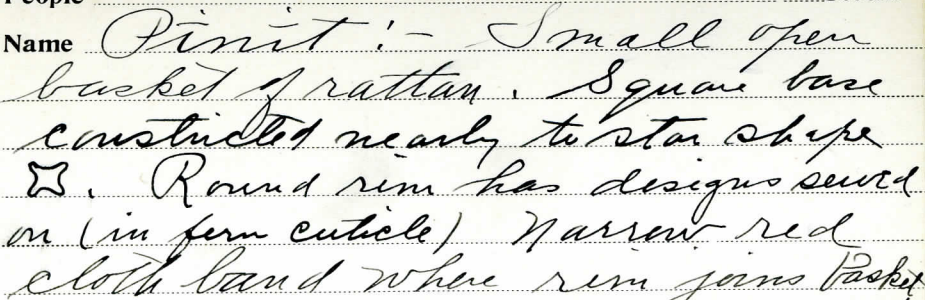 People
Name Pinit :- Small open
basket of rattan. Square base
constricted nearly to star shape
. Round rim has designs sewed
on (in fern cuticle) Narrow red
cloth band where rim joins basket